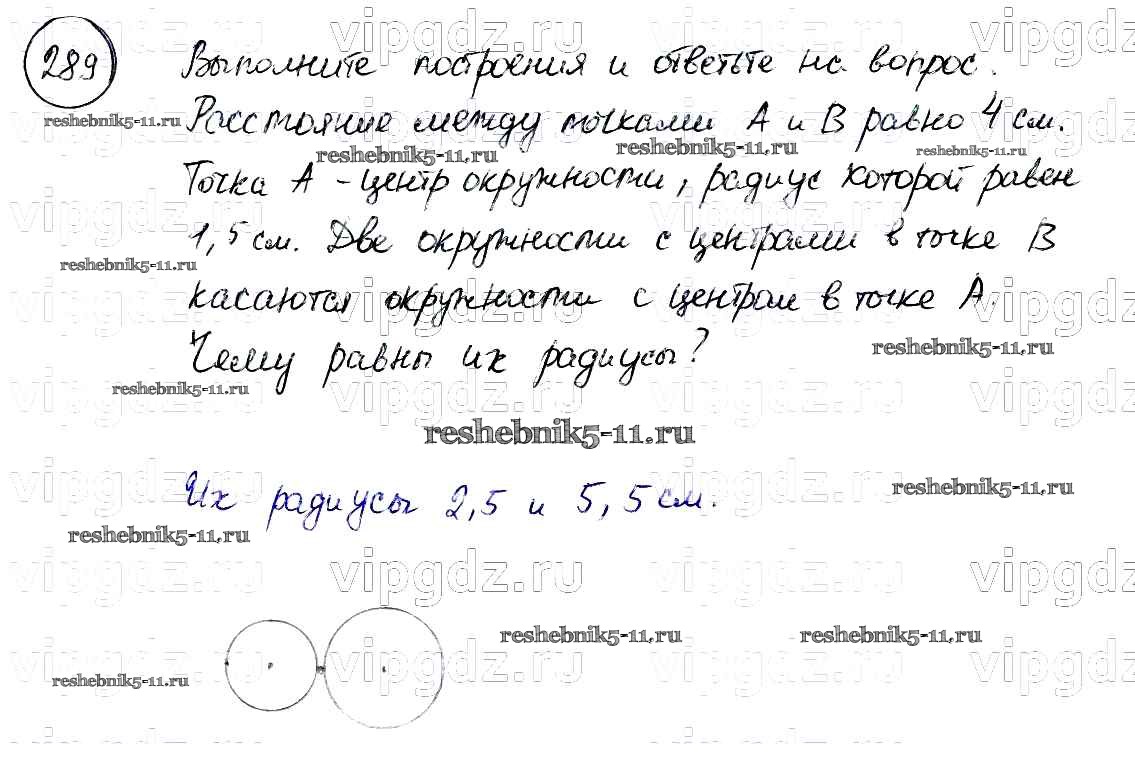 289
Выполните построения и ответьте на вопрос.
Расстояние между точками А и В равно 4 см.
Точка А - центр окружности, радиус которой равен
1,5 см. Две окружности с центрами в точке В
касаются окружности с центром в точке А.
Чему равны их радиусы?
Их радиусы 2,5 и 5,5 см.
reshebnik5-11.ru
vipgdz.ru